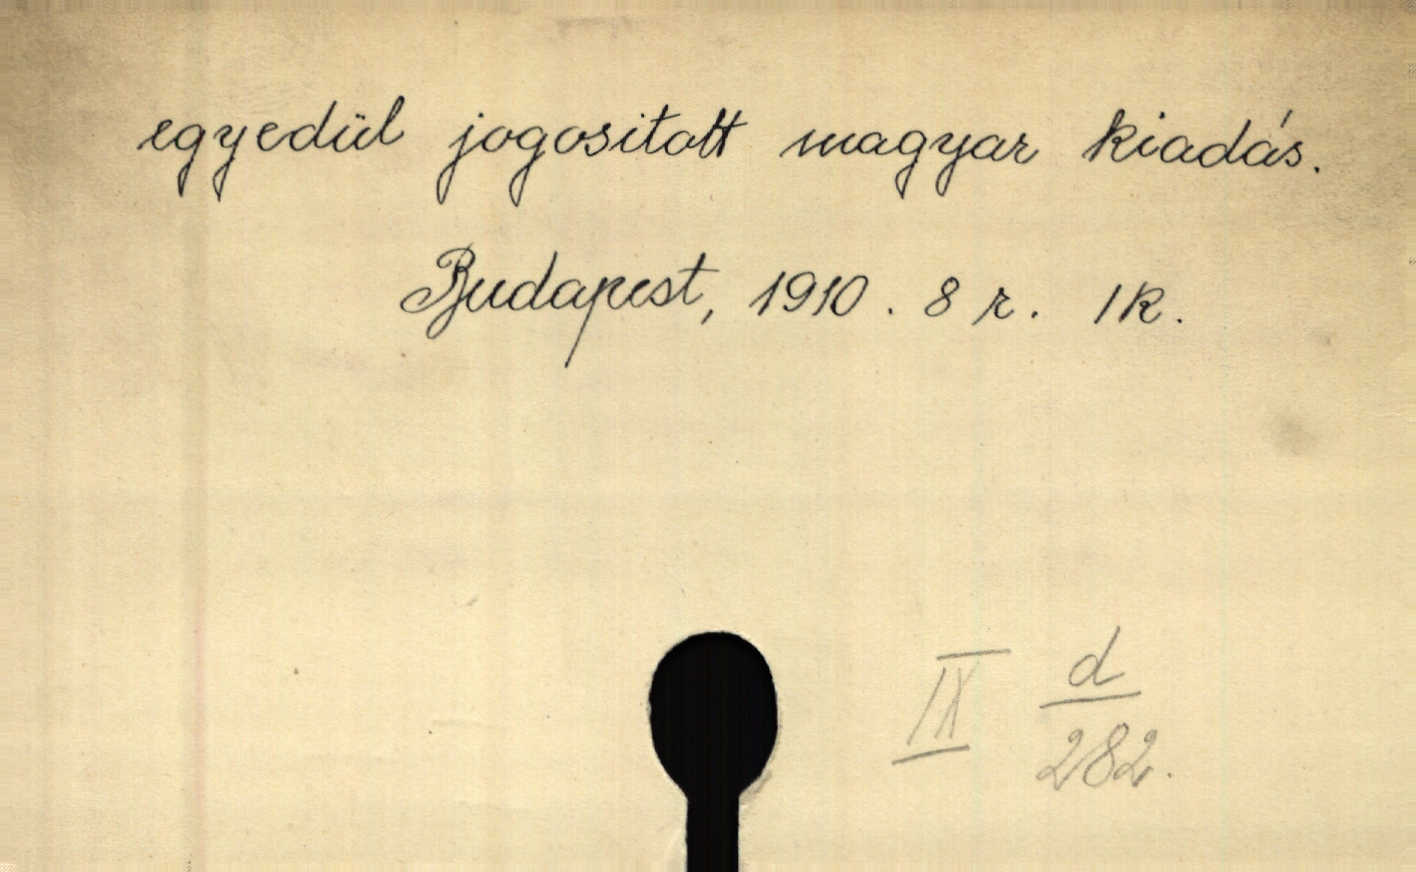 egyedül jogositott magyar kiadás.
Budapest, 1910. 8 r. 1 k.
IX d/282.